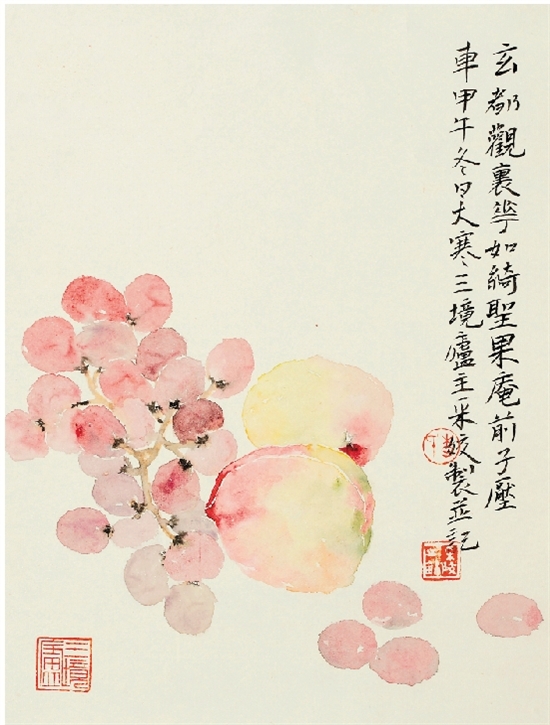 玄都觀裏華如綺聖果庵前子壓
車甲午冬日大寒三境廬主采姣製並記
三境廬